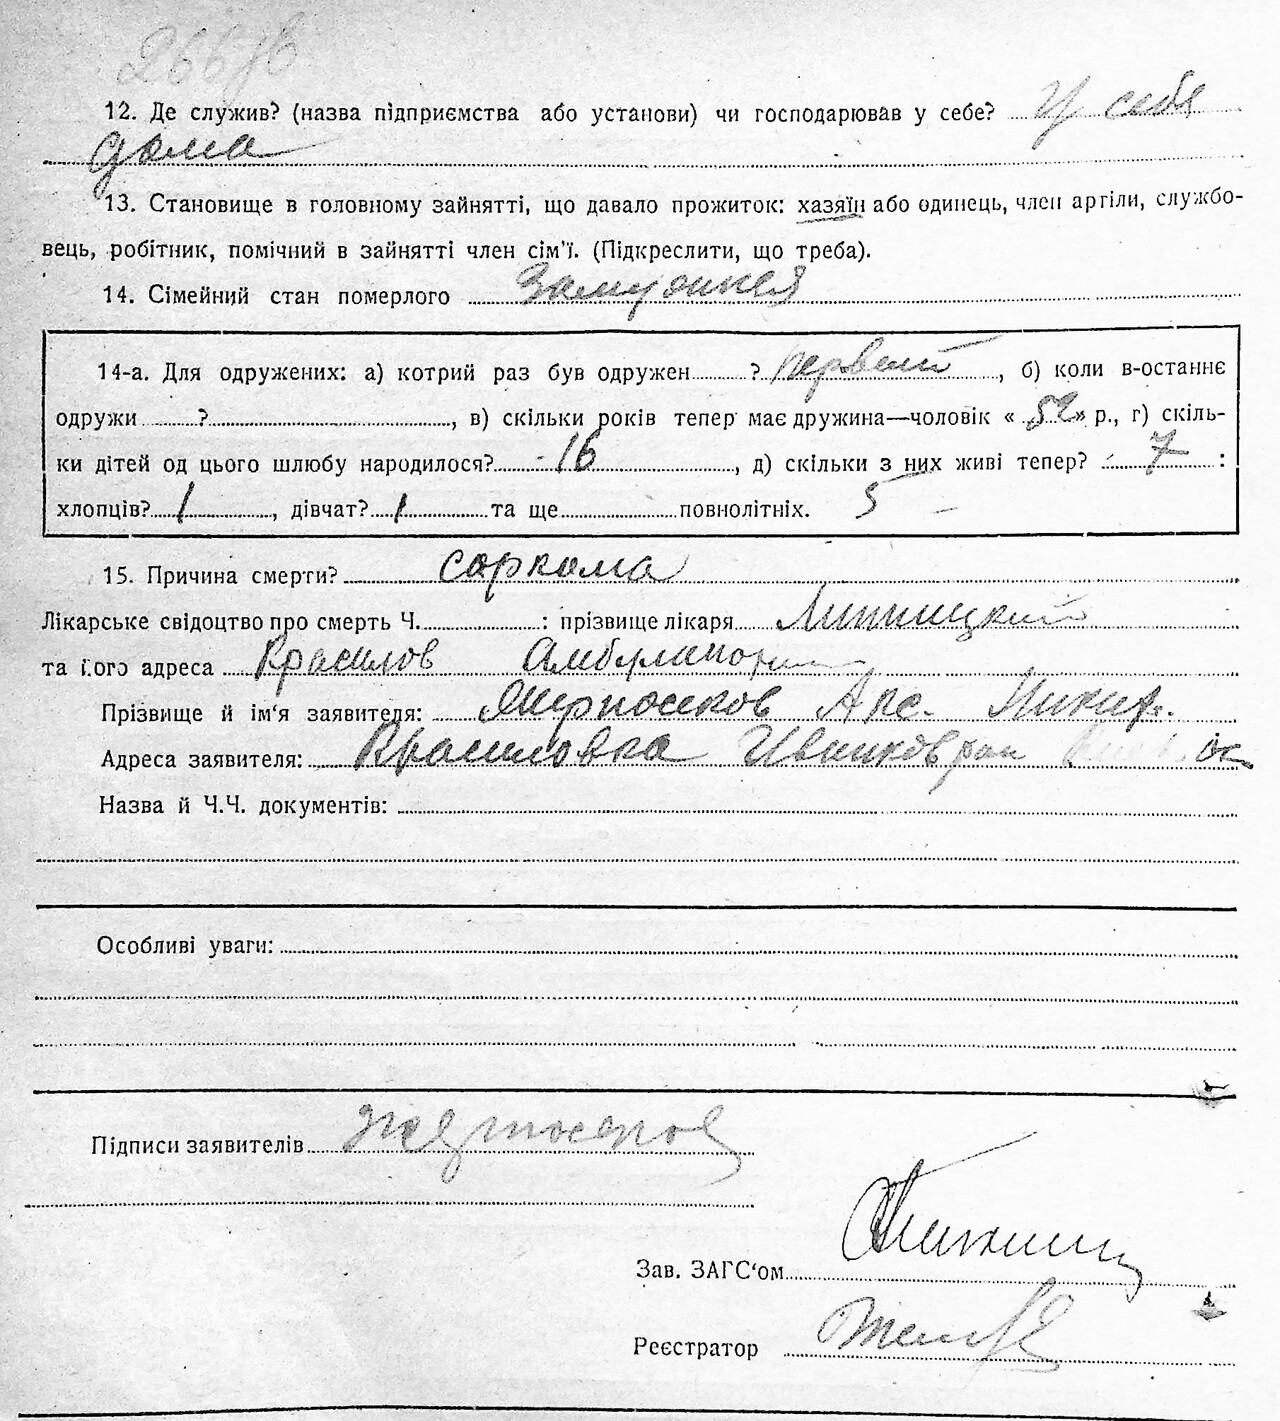 12. Де служив? (назва підприємства або установи) чи господарював у себе? У себя
дома
13. Становище в головному зайнятті, що давало прожиток: хазяїн або одинець, член аргіли, службо-
вець, робітник, помічний в зайнятті член сім'ї. (Підкреслити, що треба).
14. Сімейний стан померлого Замужняя
14-а. Для одружених: а) котрий раз був одружен ? первый, б) коли в-останнє
одружи ?, в) скільки років тепер має дружина—чоловік « 52» р., г) скіль-
ки дітей од цього шлюбу народилося? 16, д) скільки з них живі тепер? 7 :
хлопців? 1, дівчат? 1 та ще повнолітніх. 5
15. Причина смерти? саркома
Лікарське свідоцтво про смерть Ч. : прізвище лікаря Липницкий
та його адреса Красилов Амбулатория
Прізвище й ім'я заявителя:
Адреса заявителя: Красиловка
Назва й Ч.Ч. документів:
Особливі уваги:
Підписи заявителів
Зав. ЗАГС'ом
Реєстратор